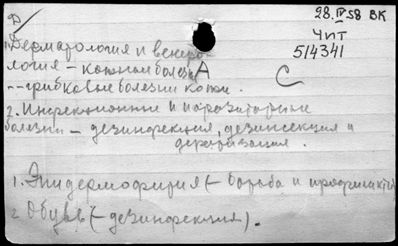 Д
28.IV.58 ВК
ЧИТ
514341
1. Дерматология и венеро-
логия – кожные болезни А
-- грибковые болезни кожи. С
2. Инфекционные и паразитарные
болезни – дезинфекция, дезинсекция и
дератизация.
1. Эпидермофития (– борьба и профилактика)
2. Обувь (– дезинфекция).